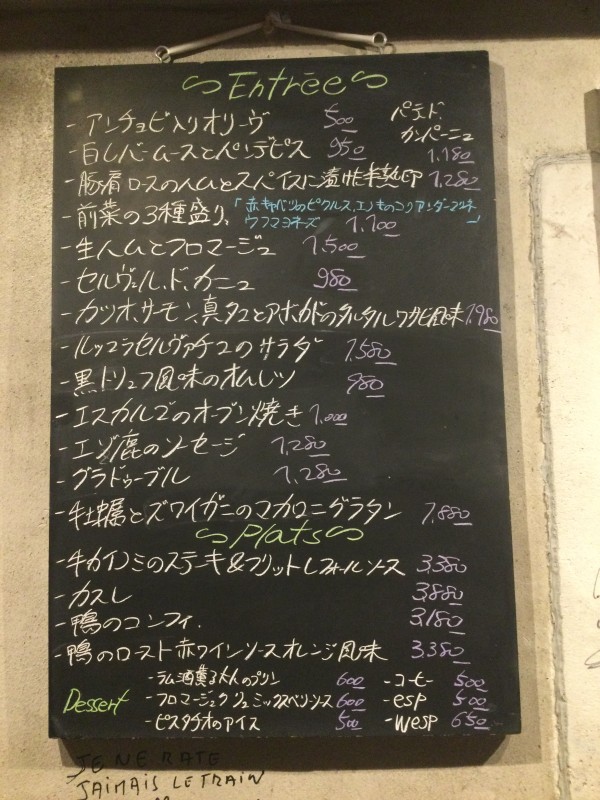 Entrée
- アンチョビ入りオリーヴ 500
パテ.ド.カンパーニュ 1.180
- 白レバームースとペンデピス 950
- 豚肩ロースのハムとスパイスに漬けた半熟卵 1,280
- 前菜の3種盛り 「赤キャベツのピクルス、エノキのコリアンダーマリネ
ウフマヨネーズ」 1,700
- 生ハムとフロマージュ 1,500
- セルヴェル.ド.カニュ 980
- カツオ、サーモン、真ダコとアボカドのタルタルワサビ風味 1,980
- ルッコラセルヴァチコのサラダ 1,580
- 黒トリュフ風味のオムレツ 980
- エスカルゴのオーブン焼き 1,000
- エゾ鹿のソーセージ 1,280
- グラドゥーブル 1,280
- 牡蠣とズワイガニのマカロニグラタン 1,880
Plats
- 牛カイノミのステーキ&フリットレフォールソース 3,380
- カスレ 3,880
- 鴨のコンフィ. 3,180
- 鴨のロースト赤ワインソースオレンジ風味 3,380
Dessert
- ラム酒薫る大人のプリン 600
- フロマージュクリュミックスベリーソース 600
- ピスタチオのアイス 500
- コーヒー 500
- esp 500
- Wesp 650
JE NE RATE
JAIMAIS LE TRAIN